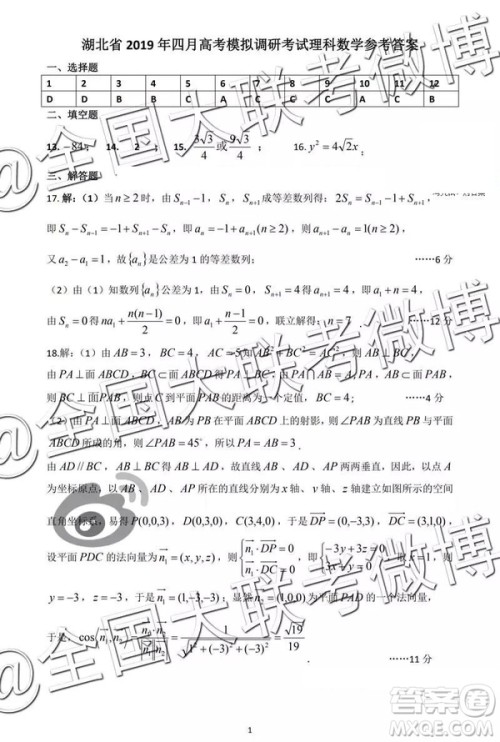 湖北省 2019 年四月高考模拟调研考试理科数学参考答案
一、选择题
1 2 3 4 5 6 7 8 9 10 11 12
D D B B C A C C C A C B
二、填空题
13. -84; 14. 2 ; 15. 3√3/4 或 9√3/4 ; 16. y²=4√2x ;
三、解答题
17. 解:(1)当 n≥2 时,由 Sₙ₋₁-1,Sₙ,Sₙ₊₁ 成等差数列得:2Sₙ=Sₙ₋₁-1+Sₙ₊₁,
即 Sₙ-Sₙ₋₁=-1+Sₙ₊₁-Sₙ,即 aₙ=-1+aₙ₊₁(n≥2),则 aₙ₊₁-aₙ=1(n≥2),
又 a₂-a₁=1,故{aₙ}是公差为 1 的等差数列; ……6 分
(2)由(1)知数列{aₙ}公差为 1,由 Sₙ=0,Sₙ₊₁=4 得 aₙ₊₁=4,即 a₁+n=4,
由 Sₙ=0 得 na₁+n(n-1)/2=0,即 a₁+(n-1)/2=0,联立解得:n=7. ……12 分
18.解:(1)由 AB=3,BC=4,AC=5 知 AB²+BC²=AC²,则 AB⊥BC,
由 PA⊥面 ABCD,BC⊂面 ABCD 得 PA⊥BC,由 PA∩AB=A,PA,AB⊂面 PAB,
则 BC⊥面PAB,则点 C 到平面 PAB 的距离为一个定值,BC=4; ……4 分
(2)由 PA⊥面 ABCD,AB 为 PB 在平面 ABCD 上的射影,则∠PBA 为直线 PB 与平面
ABCD 所成的角,则∠PBA=45°,所以 PA=AB=3.
由 AD//BC,AB⊥BC 得 AB⊥AD,故直线 AB、AD、AP 两两垂直,因此,以点 A
为坐标原点,以 AB、AD、AP 所在的直线分别为 x 轴、y 轴、z 轴建立如图所示的空间
直角坐标系,易得 P(0,0,3),D(0,3,0),C(3,4,0),于是 DP=(0,-3,3),DC=(3,1,0),
设平面 PDC 的法向量为 n₁=(x,y,z),则 { n₁·DP=0 n₁·DC=0,即 { -3y+3z=0 3x+y=0,取 x=1,则
y=-3,z=-3,于是 n₁=(1,-3,-3);显然 n₂=(1,0,0) 为平面 PAD 的一个法向量,
于是,cos(n₁,n₂)=n₁·n₂/|n₁||n₂|=1/√(1²+(-3)²+(-3)²)=√19/19.
……11 分
1
@全国大联考微博
答案圈
MXQE.COM